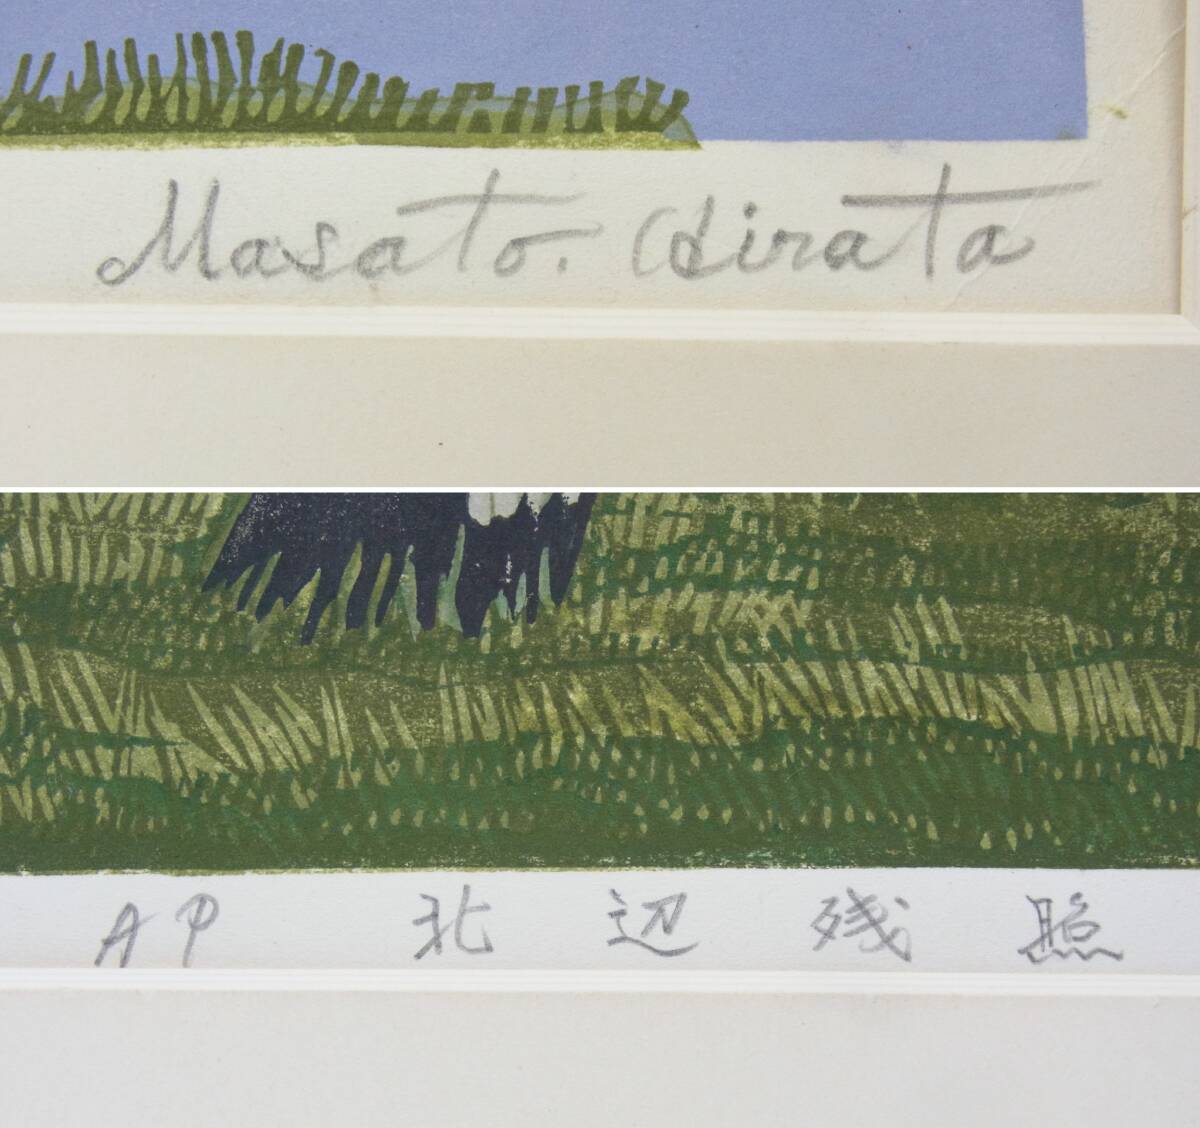 Masato. Hirata
AP 北辺残照